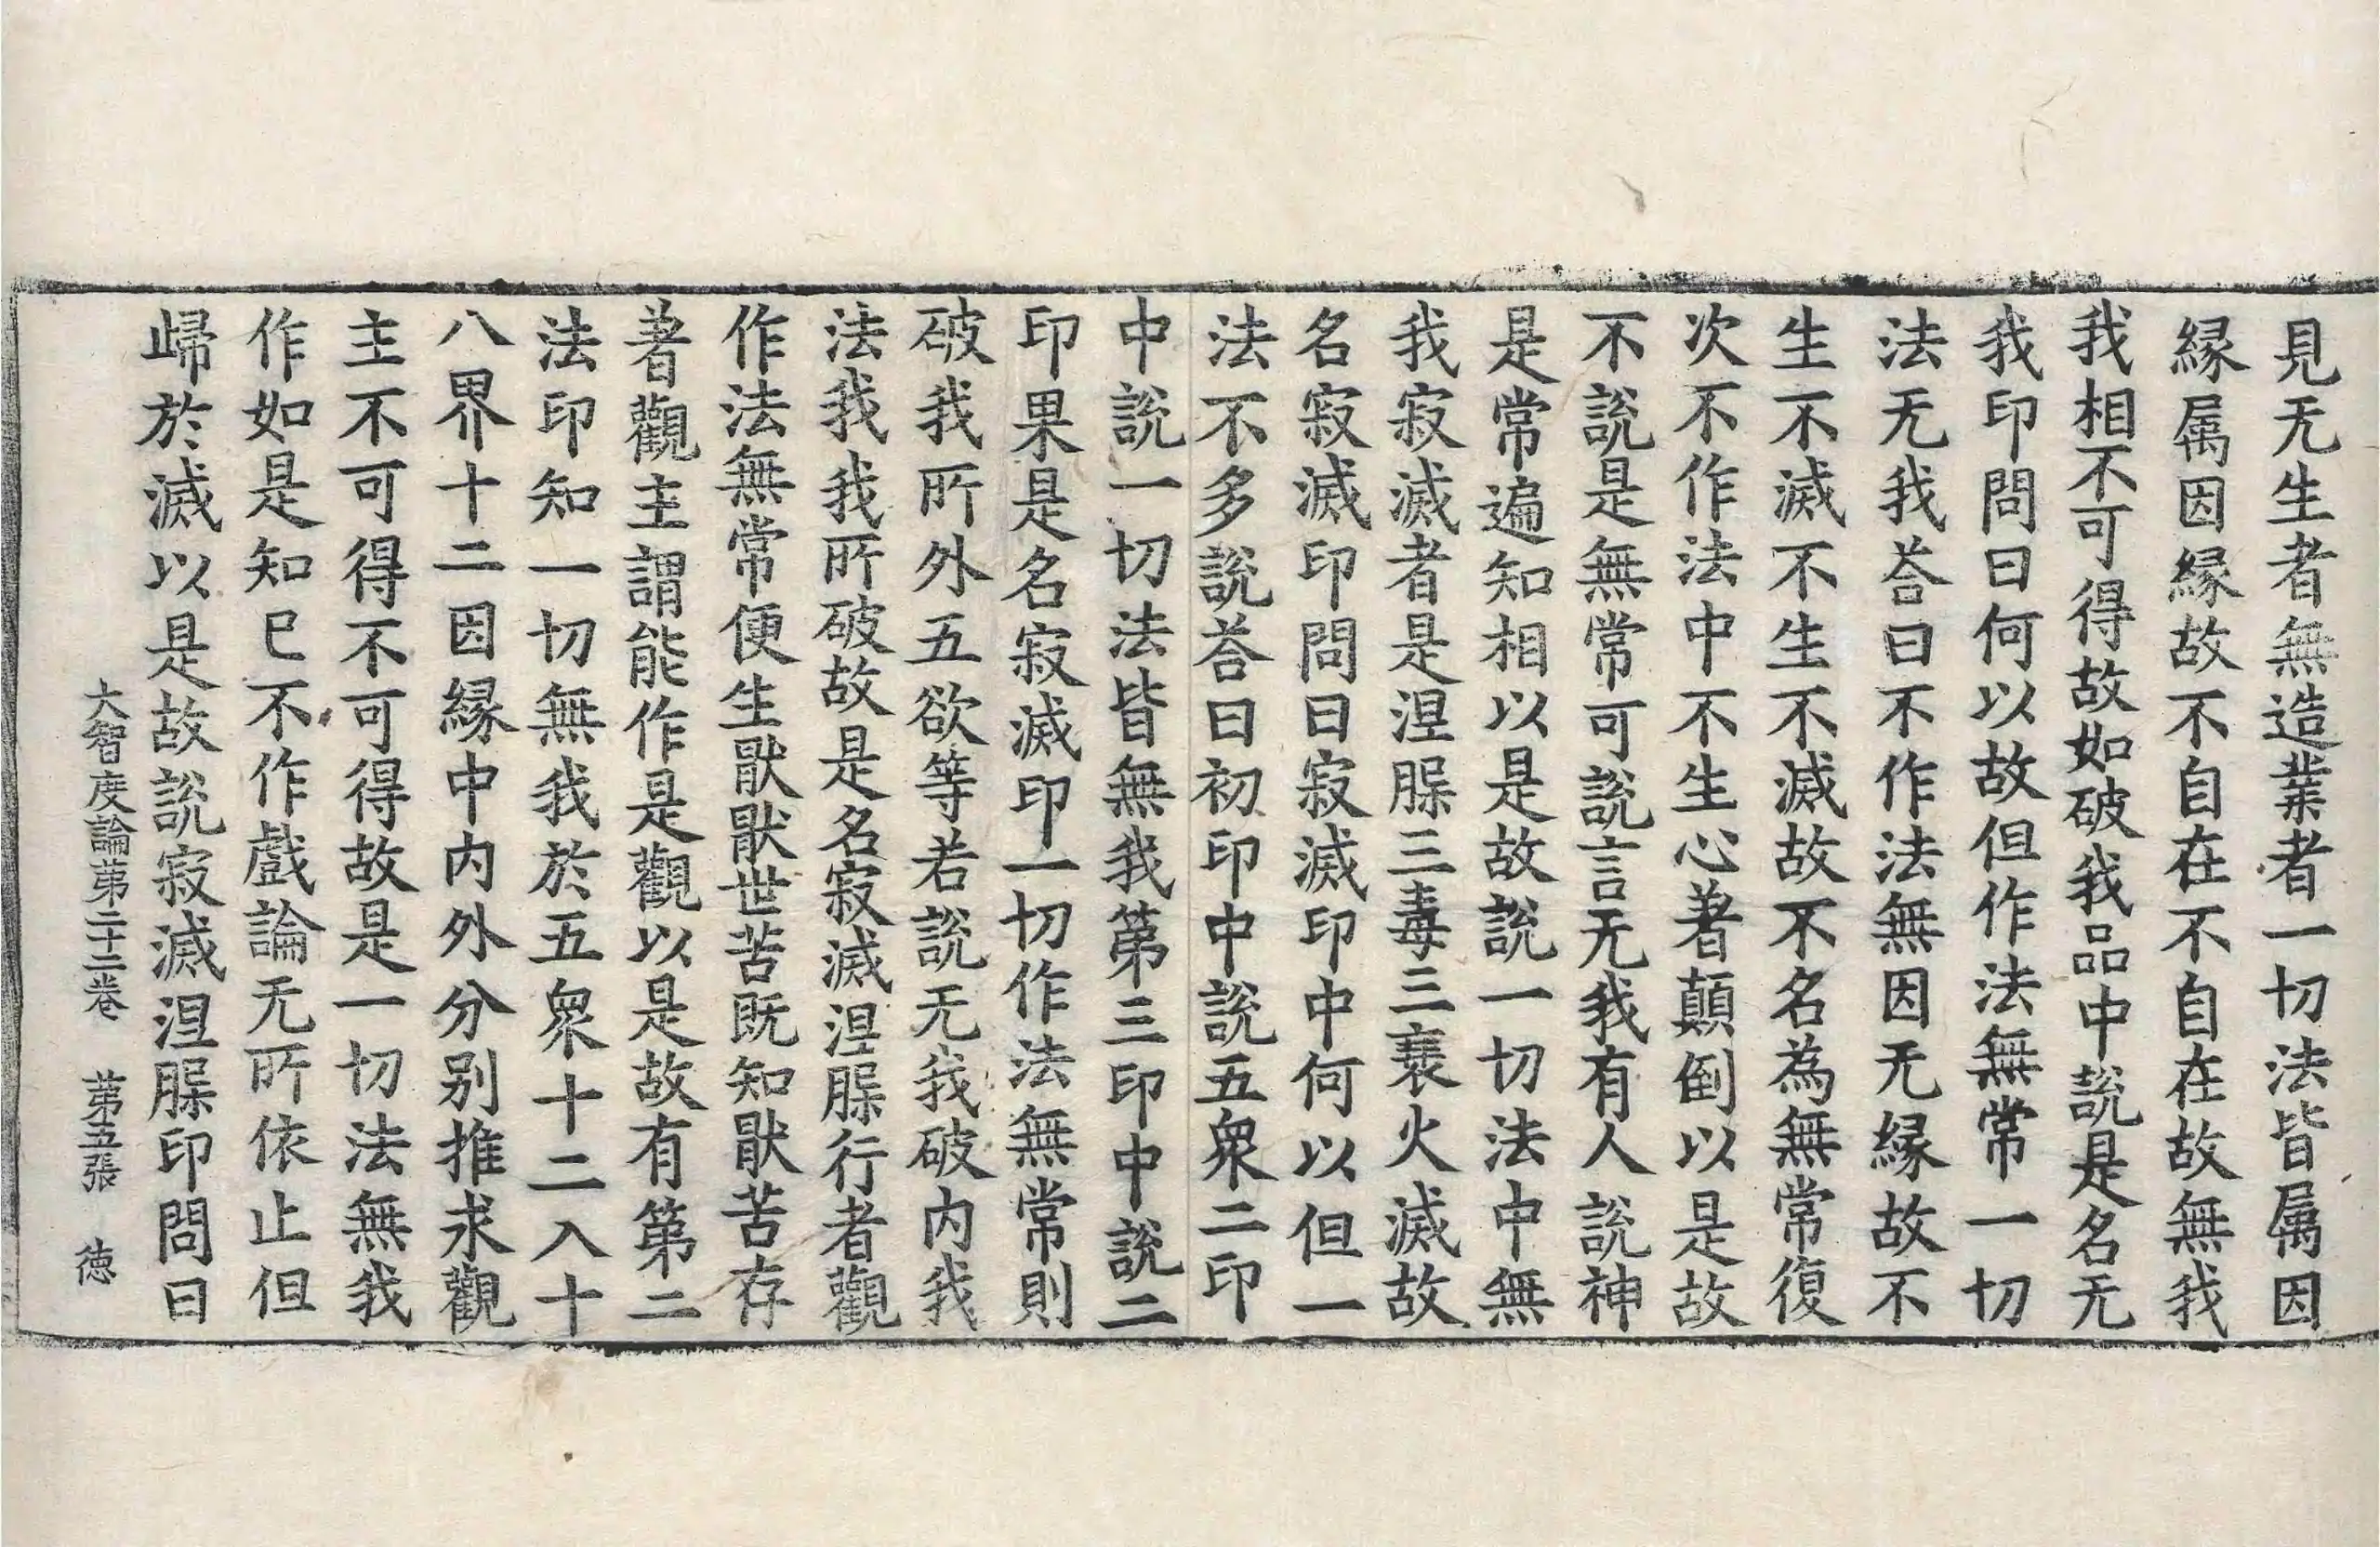 見无生者無造業者一切法皆属因
縁属因縁故不自在不自在故無我
我相不可得故如破我品中說是名无
我印問曰何以故但作法無常一切
法无我荅曰不作法無因无縁故不
生不滅不生不滅故不名為無常復
次不作法中不生心著顛倒以是故
不說是無常可說言无我有人說神
是常遍知相以是故說一切法中無
我寂滅者是涅槃三毒三衰火滅故
名寂滅印問曰寂滅印中何以但一
法不多說荅曰初印中說五衆二印
中說一切法皆無我第三印中說二
印果是名寂滅印一切作法無常則
破我所外五欲等若說无我破内我
法我我所破故是名寂滅涅槃行者觀
作法無常便生猒猒世苦既知猒苦存
著觀主謂能作是觀以是故有第二
法印知一切無我於五衆十二入十
八界十二因縁中内外分别推求觀
主不可得不可得故是一切法無我
作如是知已不作戲論无所依止但
歸於滅以是故說寂滅涅槃印問曰
大智度論第二十二卷 第五張 徳